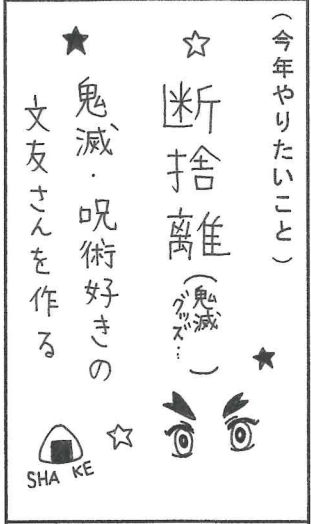 (今年やりたいこと)
☆断捨離(鬼滅
グッズ…)
★鬼滅・呪術好きの
文友さんを作る
SHA KE